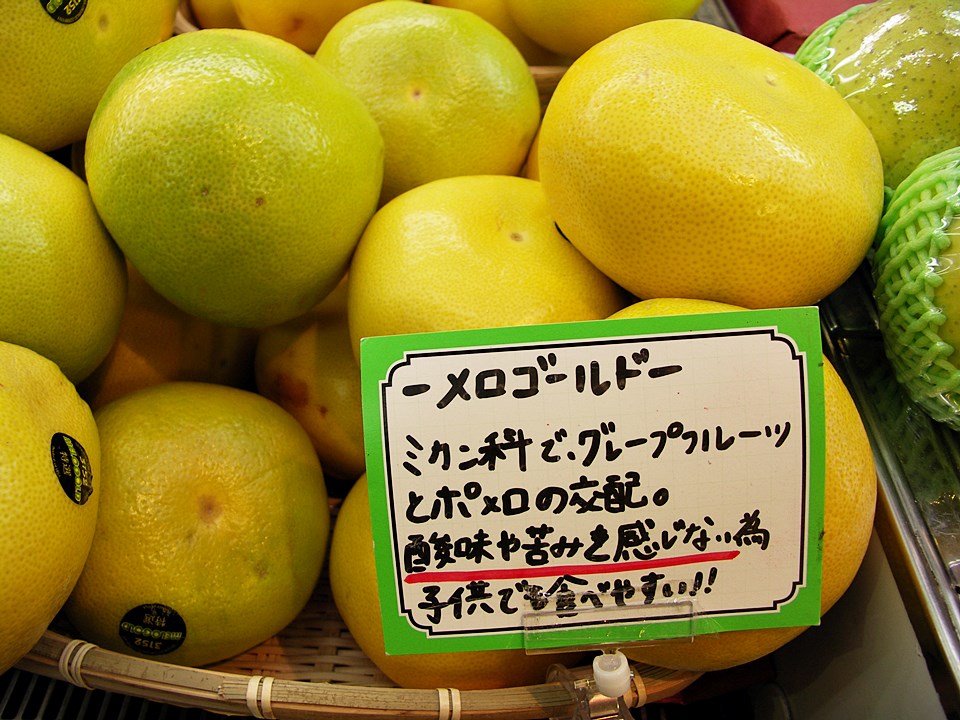 ーメロゴールドー
ミカン科で、グレープフルーツ
とポメロの交配。
酸味や苦みを感じない為
子供でも食べやすい!!
3152
特選
MELOGOLD
3152
特選
MELOGOLD
3152